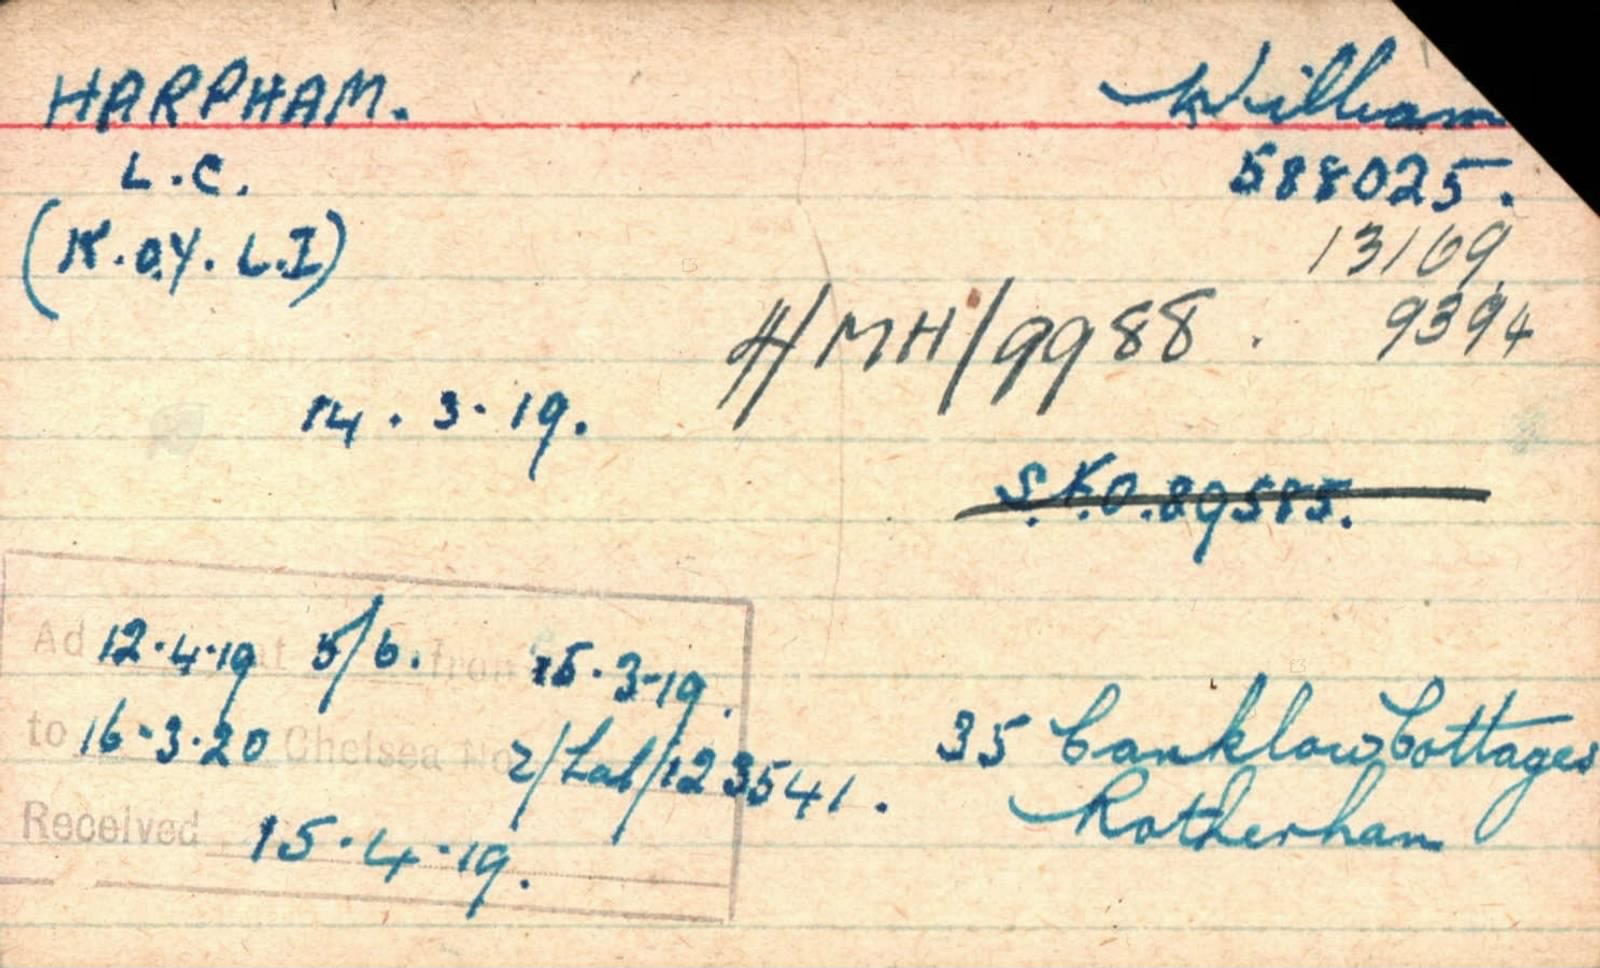 HARPHAM. William
L.C. 588025.
(K.O.Y.L.I) 13169
4/MH/9988. 9394
14.3.19.
S.K.O.89585.
Ad 12.4.19 at 5/6. from 15.3-19.
to 16.3.20 Chelsea No 2/Lab/123541.
35 Canklow Cottages
Rotherham
Received 15.4.19.